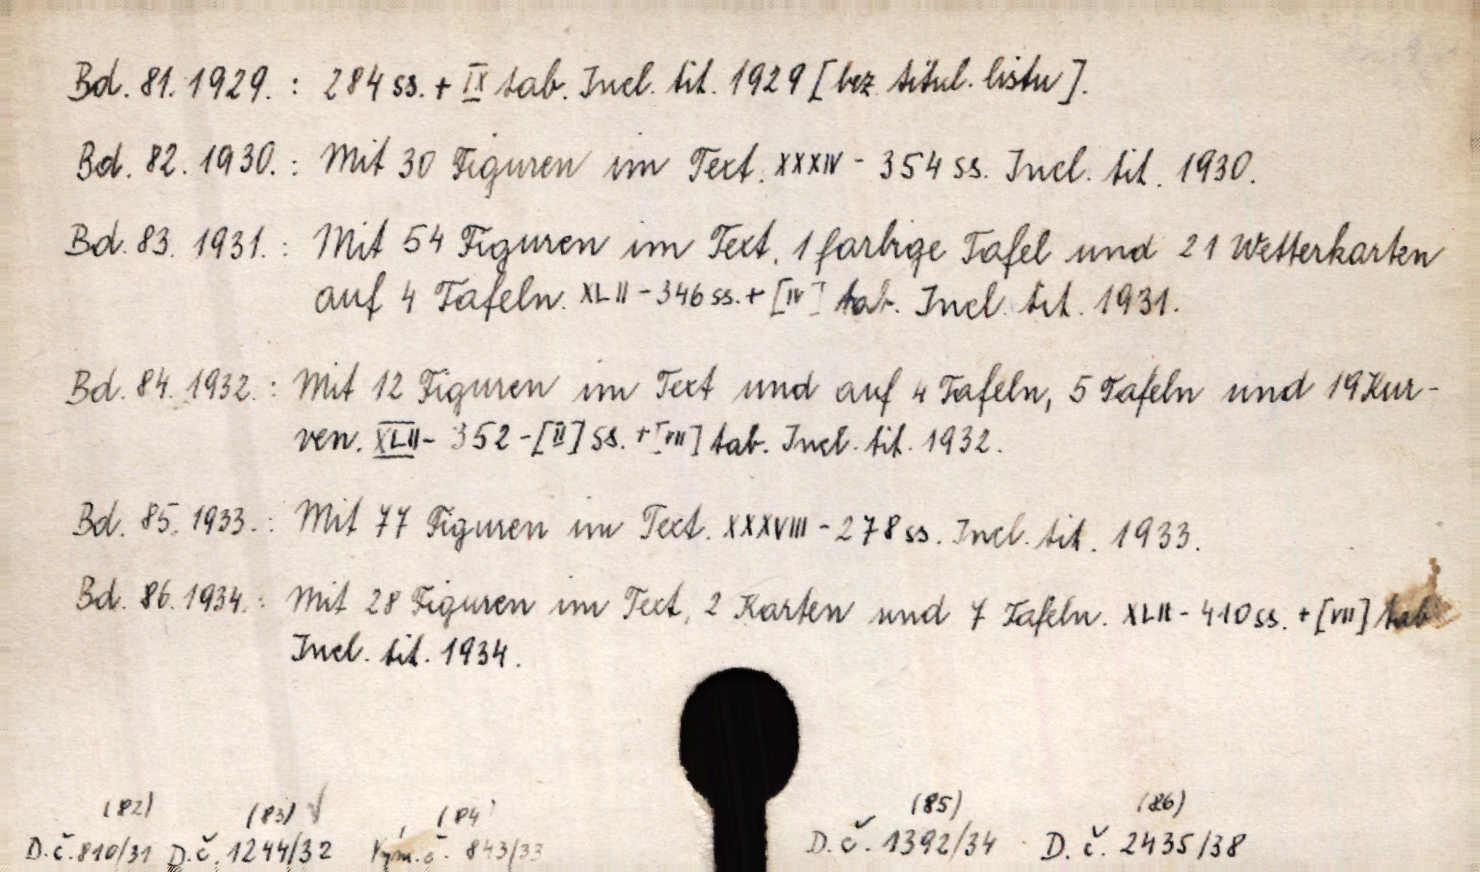 Bd. 81. 1929. : 284 ss. + IX tab. Incl. tit. 1929 [bez titul. listu].
Bd. 82. 1930. : Mit 30 Figuren im Text. XXXIV - 354 ss. Incl. tit. 1930.
Bd. 83. 1931. : Mit 54 Figuren im Text, 1 farbige Tafel und 21 Wetterkarten
auf 4 Tafeln. XLII - 346 ss. + [IV] tab. Incl. tit. 1931.
Bd. 84. 1932. : Mit 12 Figuren im Text und auf 4 Tafeln, 5 Tafeln und 19 Kur-
ven. XLII - 352 - [II] ss. + [VII] tab. Incl. tit. 1932.
Bd. 85. 1933. : Mit 77 Figuren im Text. XXXVIII - 278 ss. Incl. tit. 1933.
Bd. 86. 1934. : Mit 28 Figuren im Text, 2 Karten und 7 Tafeln. XLII - 410 ss. + [VII] tab
Incl. tit. 1934.
(82) (83) (84) (85) (86)
D. č. 810/31 D. č. 1244/32 Vým. č. 843/33 D. č. 1392/34 D. č. 2435/38